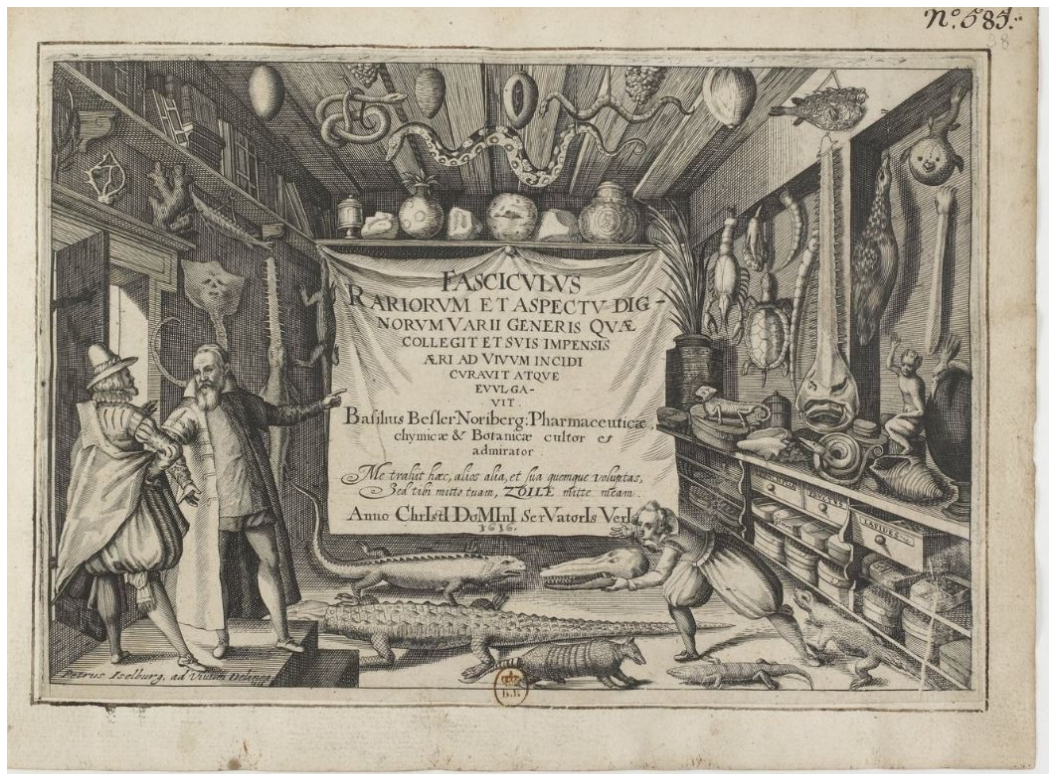 Nº. 585.
FASCICVLVS
RARIORVM ET ASPECTV DIG-
NORVM VARII GENERIS QVÆ
COLLEGIT ET SVIS IMPENSIS
ÆRI AD VIVVM INCIDI
CVRAVIT ATQVE
EVVLGA-
VIT.
Basilius Besler Noriberg: Pharmaceuticæ,
chymicæ & Botanicæ cultor et
admirator
Me trahit hæc, alios alia, et sua quemque voluptas,
Sed tibi mitto tuam, ZOILE mitte meam.
Anno ChrIstI DoMInI SerVatorIs VerI
1616.
LAPIDES
Petrus Iselburg, ad Vivum
B.R.